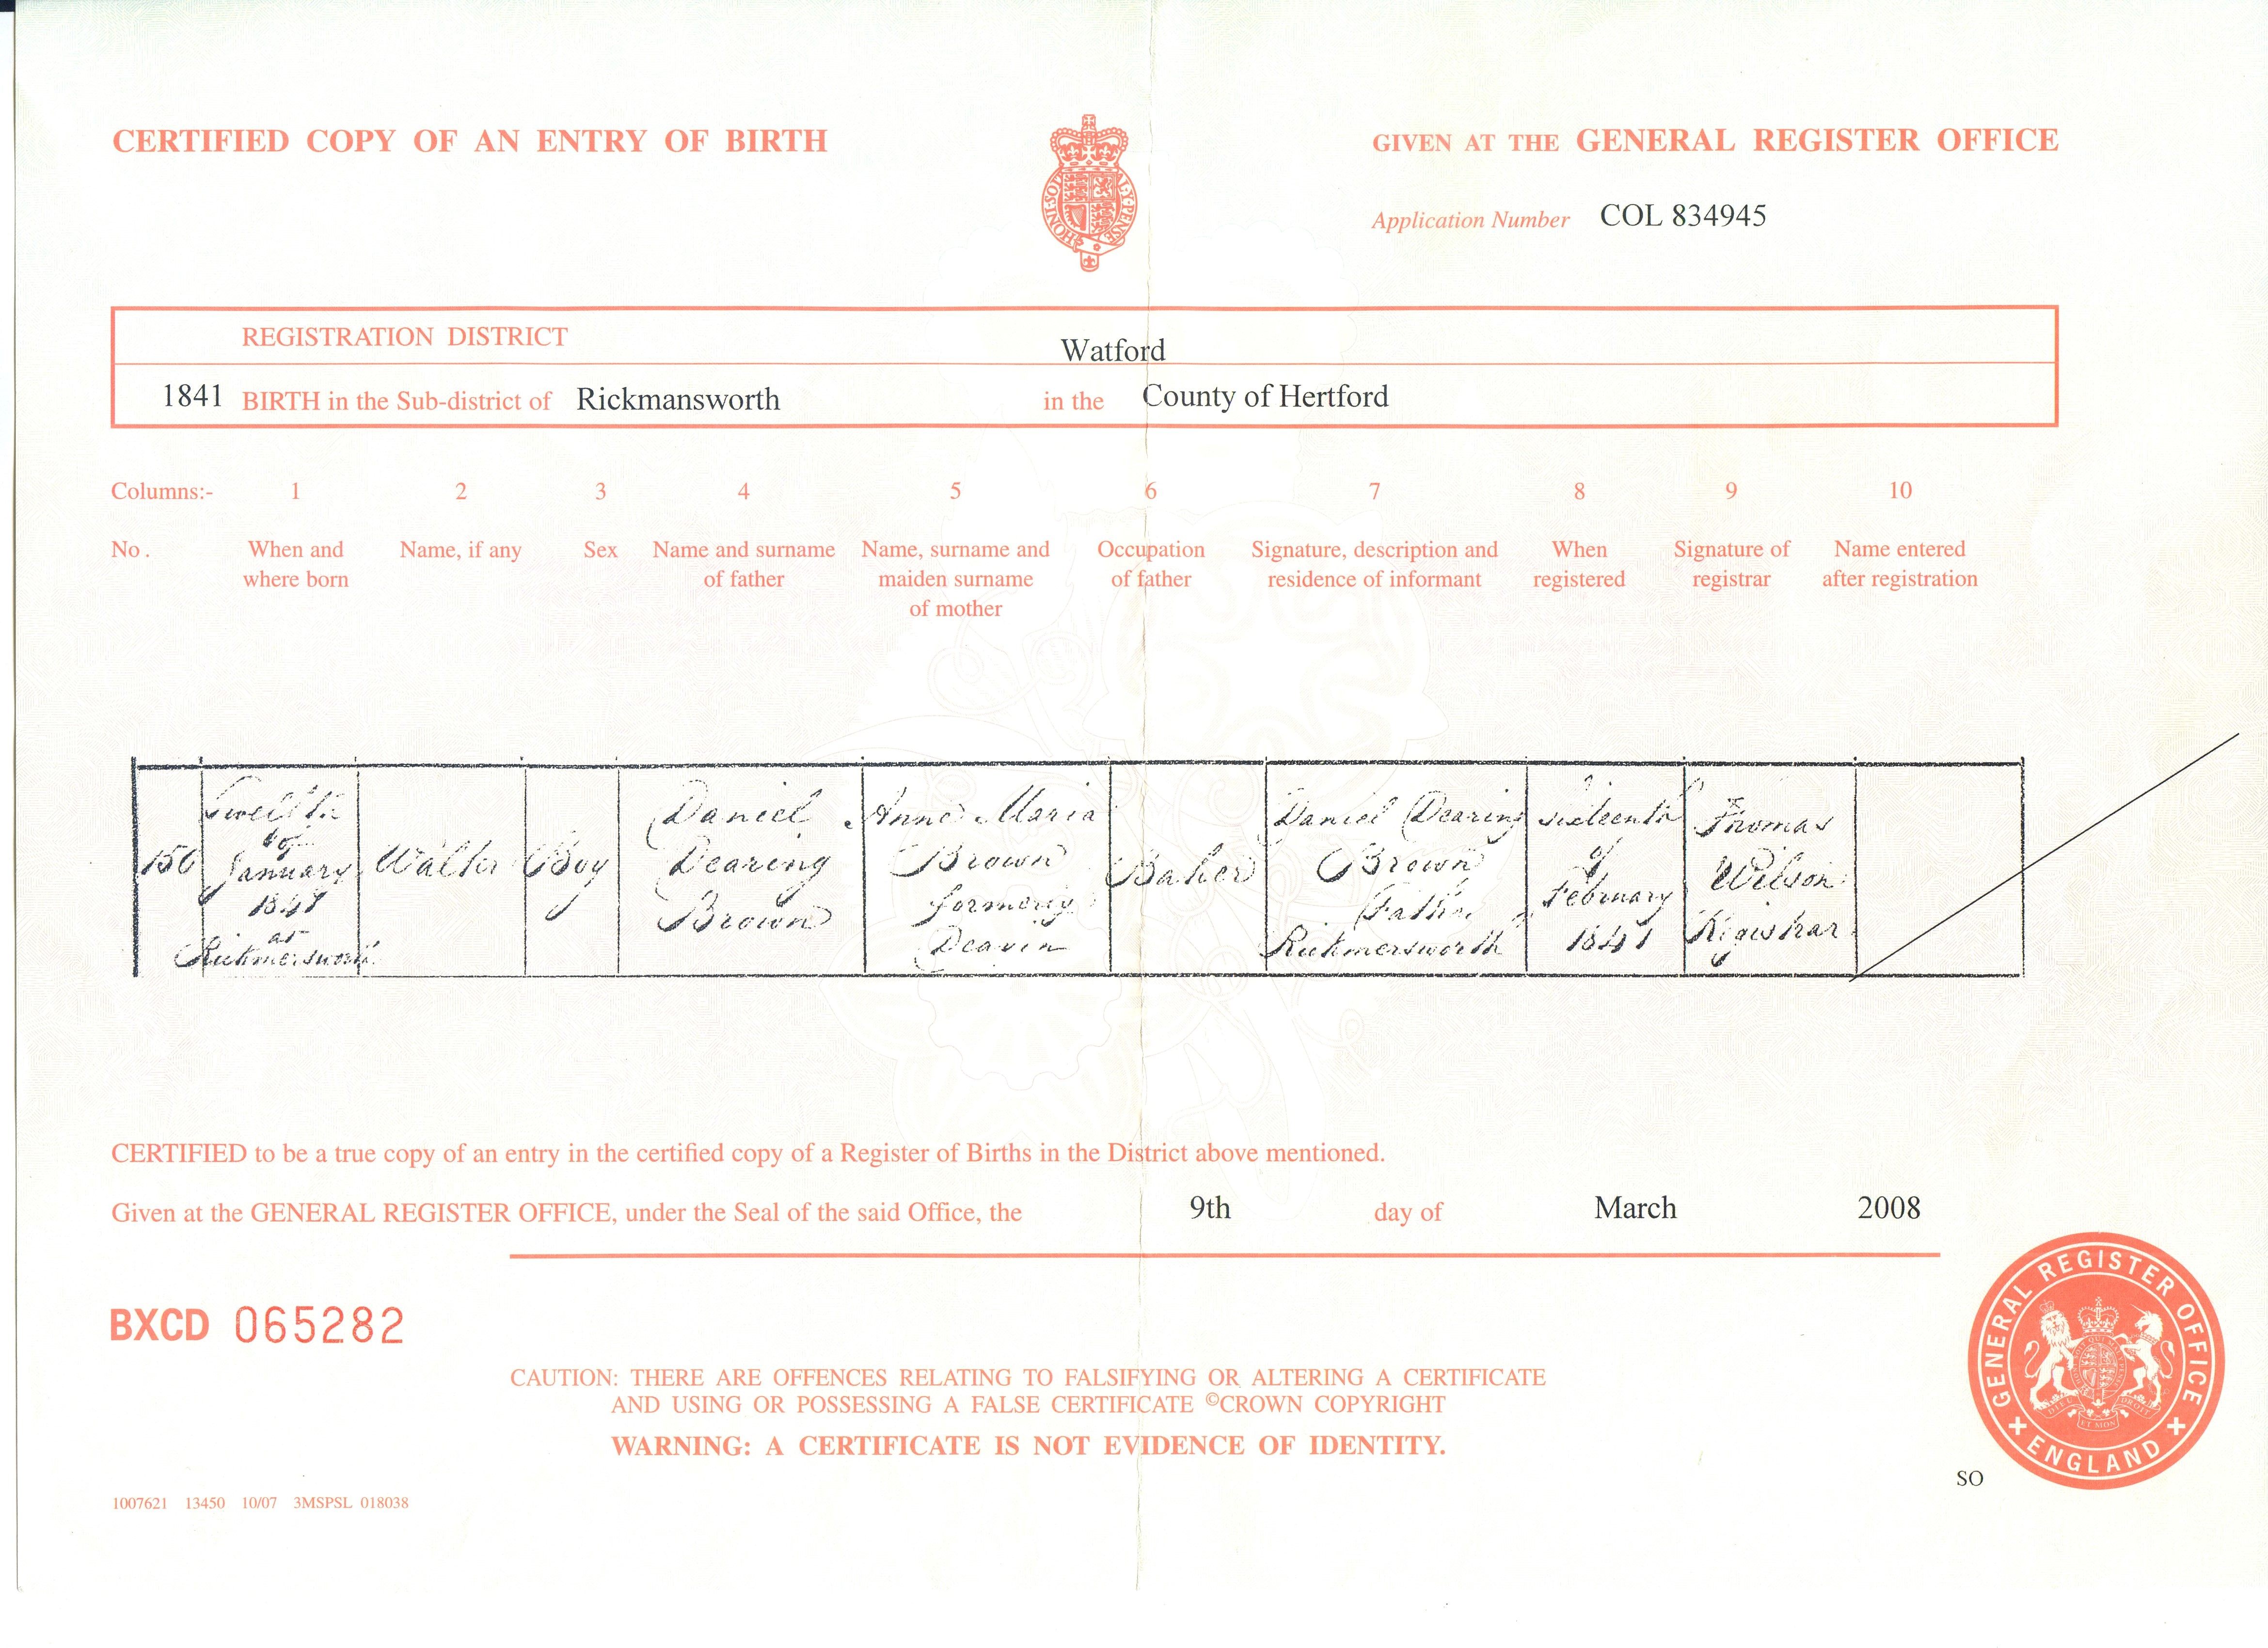 CERTIFIED COPY OF AN ENTRY OF BIRTH
GIVEN AT THE GENERAL REGISTER OFFICE
HONI·SOIT
AL·Y·PENSE
Application Number COL 834945
REGISTRATION DISTRICT Watford
1841 BIRTH in the Sub-district of Rickmansworth in the County of Hertford
Columns:- 1 2 3 4 5 6 7 8 9 10
No. When and where born
Name, if any
Sex
Name and surname of father
Name, surname and maiden surname of mother
Occupation of father
Signature, description and residence of informant
When registered
Signature of registrar
Name entered after registration
150
Twelfth
of
January
1841
at
Rickmersworth
Walter
Boy
Daniel
Dearing
Brown
Anne Maria
Brown
formerly
Deavin
Baker
Daniel Dearing
Brown
Father
Rickmersworth
Sixteenth
of
February
1841
Thomas
Wilson
Registrar
CERTIFIED to be a true copy of an entry in the certified copy of a Register of Births in the District above mentioned.
Given at the GENERAL REGISTER OFFICE, under the Seal of the said Office, the 9th day of March 2008
BXCD 065282
CAUTION: THERE ARE OFFENCES RELATING TO FALSIFYING OR ALTERING A CERTIFICATE
AND USING OR POSSESSING A FALSE CERTIFICATE ©CROWN COPYRIGHT
WARNING: A CERTIFICATE IS NOT EVIDENCE OF IDENTITY.
GENERAL REGISTER OFFICE
ENGLAND
SO
1007621 13450 10/07 3MSPSL 018038